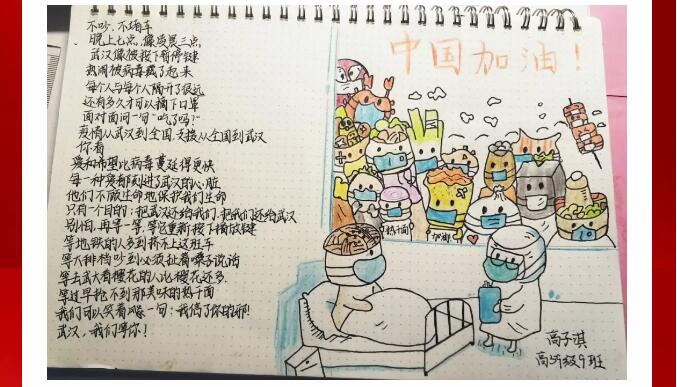 不吵,不堵车
晚上七点,像凌晨三点
武汉像被按下暂停键
热闹被病毒藏了起来
每个人与每个人隔开了很远
还有多久才可以摘下口罩
面对面问一句“吃了吗?”
疫情从武汉到全国,支援从全国到武汉
你看
爱和希望比病毒蔓延得更快
每一种爱都刻进了武汉的心脏
他们不顾生命地保护我们生命
只有一个目的:把武汉还给我们,把我们还给武汉
别怕,再等一等,等它重新按下播放键
等地铁的人多到挤不上这班车
等大排档吵到必须扯着嗓子说话
等去武大看樱花的人比樱花还多
等过早抢不到那美味的热干面
我们可以笑着喊一句:我信了你的邪!
武汉,我们等你!
中国加油!
热干面
加油
高子淇
高 级9班